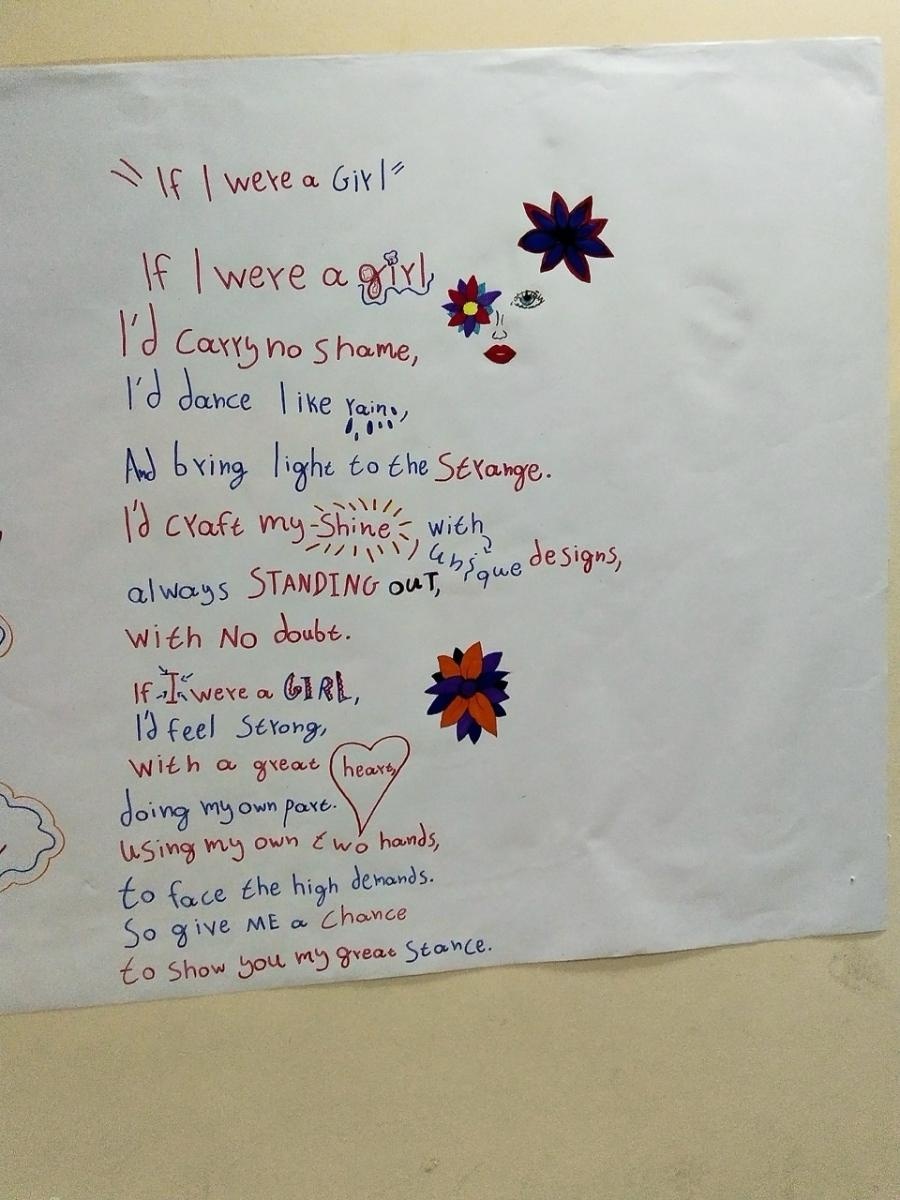 "If I were a Girl"
If I were a girl
I'd carry no shame,
I'd dance like rain,
And bring light to the Strange.
I'd craft my Shine, with unique designs,
always STANDING OUT,
with No doubt.
If I were a GIRL,
I'd feel Strong,
with a great heart,
doing my own part.
using my own two hands,
to face the high demands.
So give ME a Chance
to show you my great Stance.